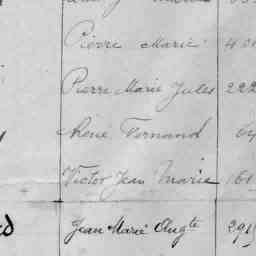 Pierre Marie
Pierre Marie Jules 222
René Fernand
Victor Jean Marie 161
Jean Marie Augte 291